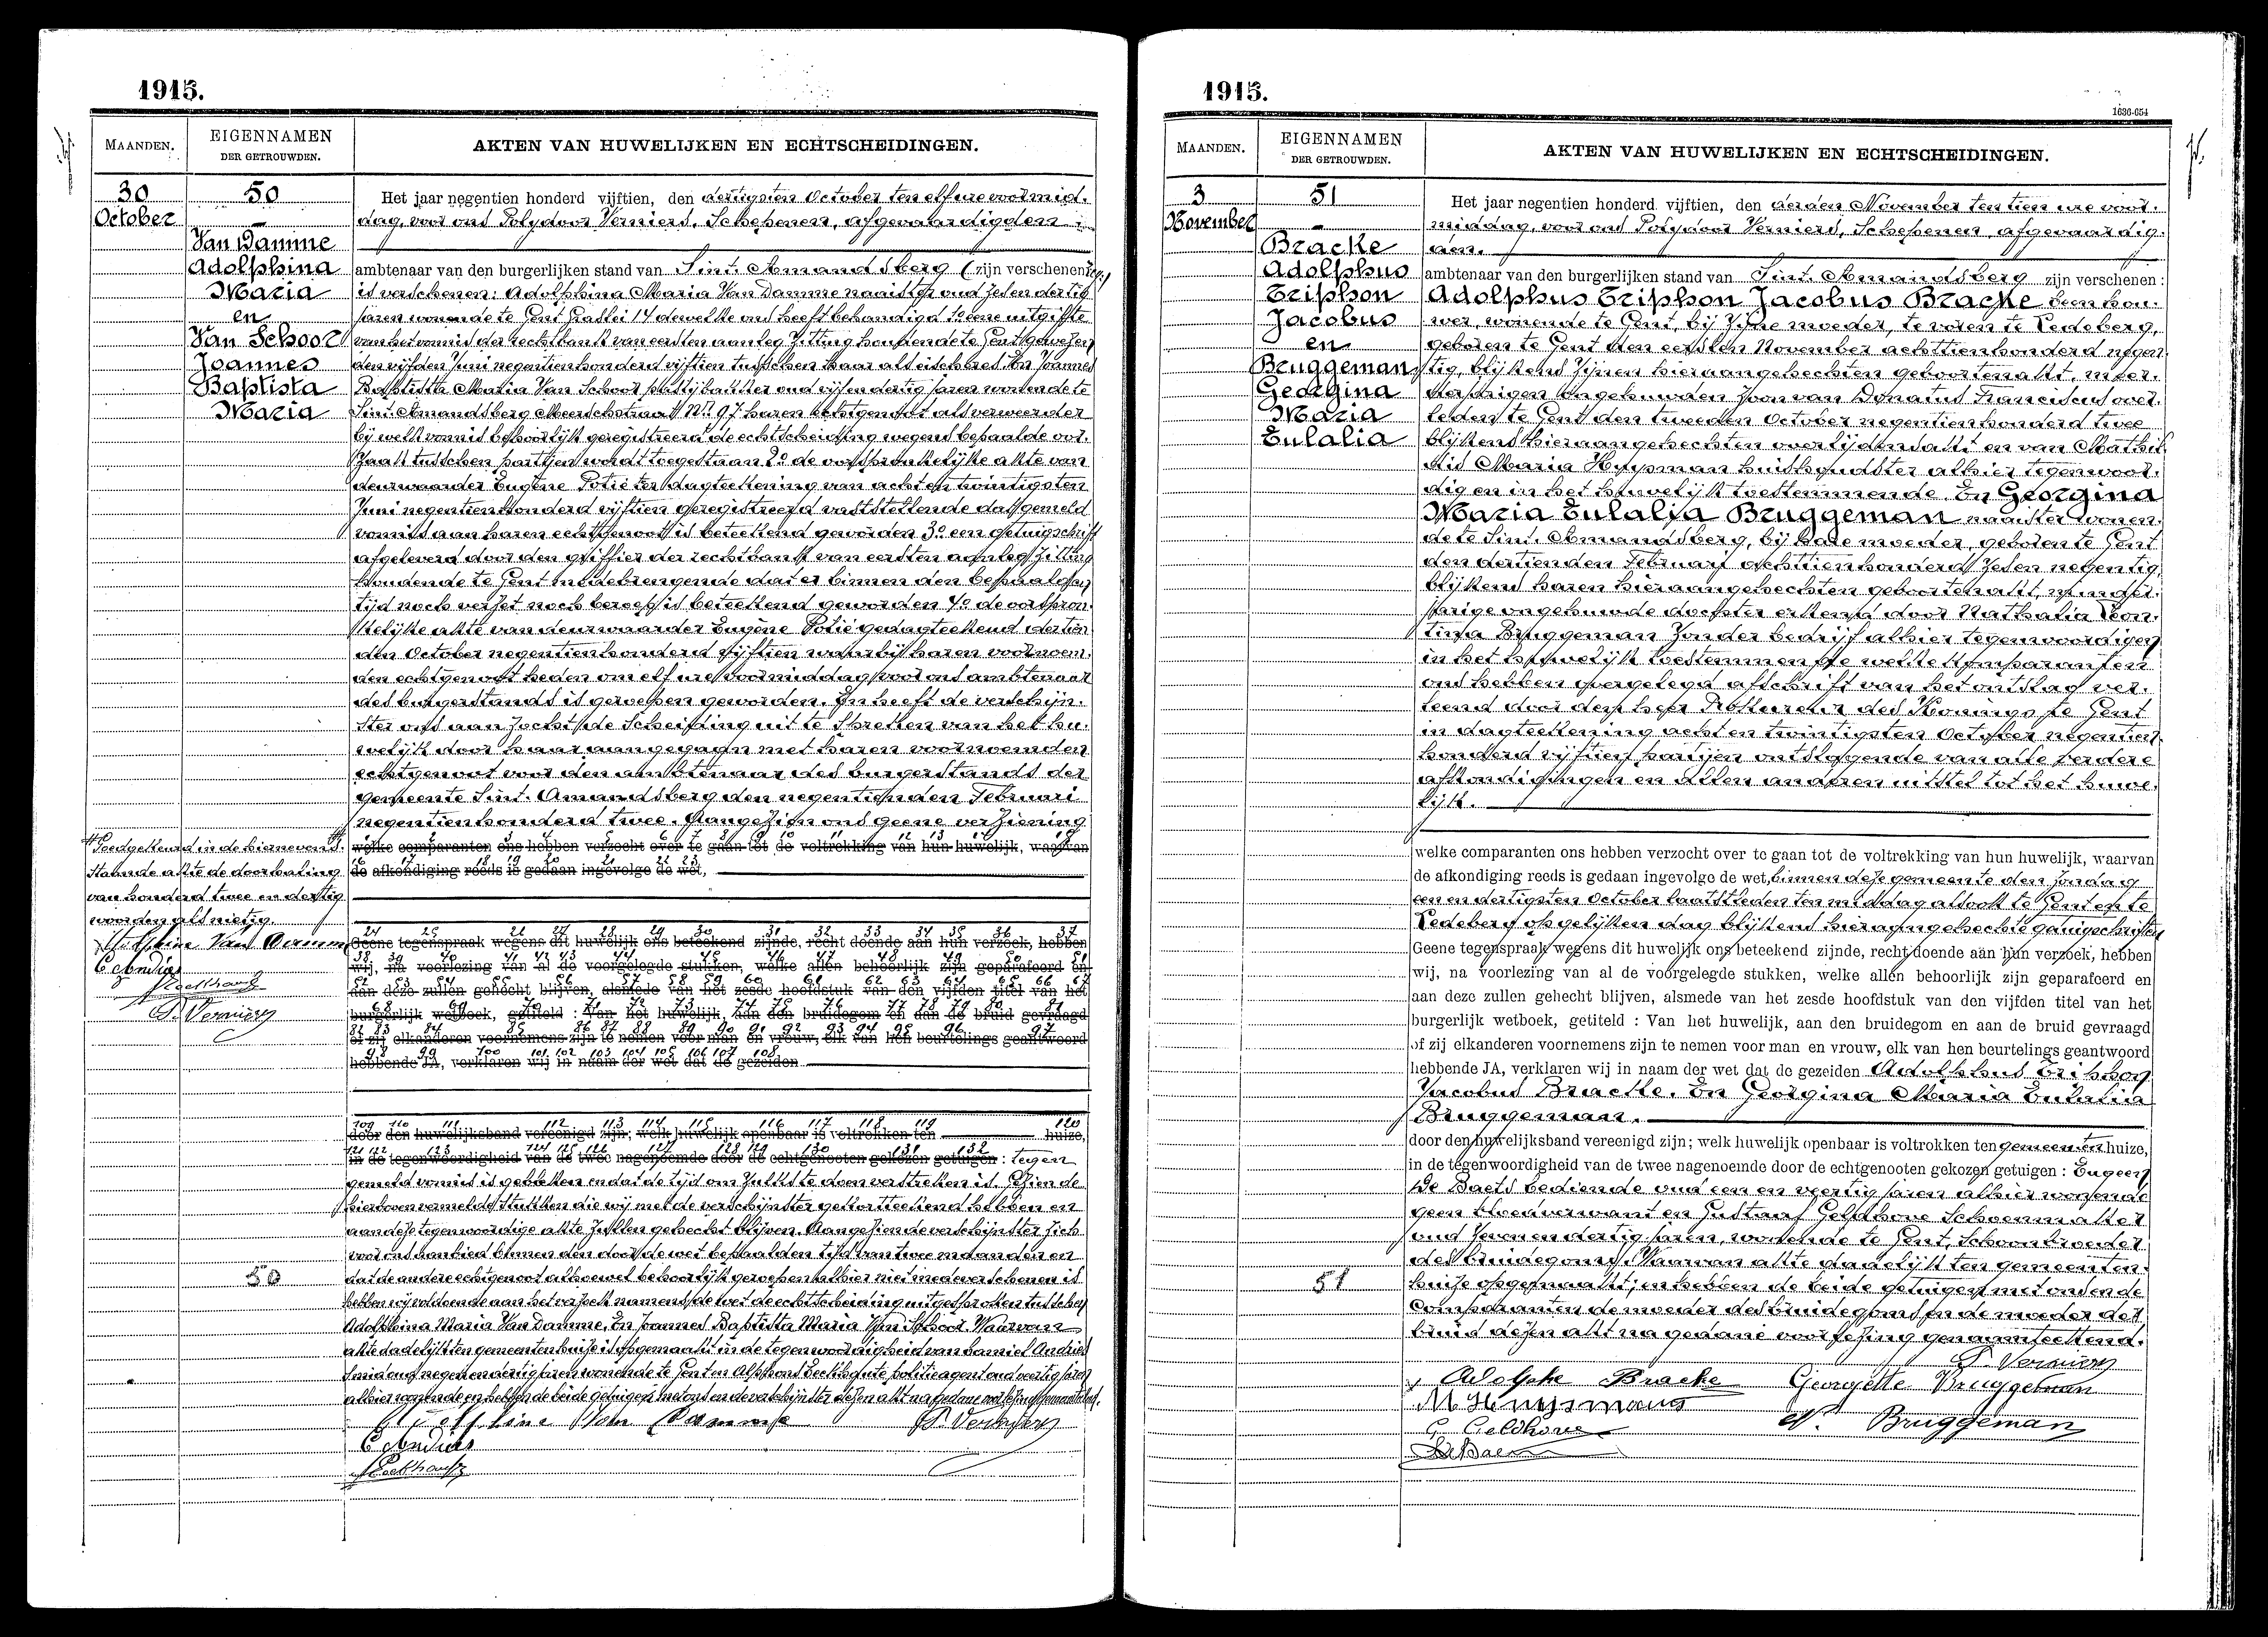 1915.
MAANDEN.
EIGENNAMEN
DER GETROUWDEN.
AKTEN VAN HUWELIJKEN EN ECHTSCHEIDINGEN.
30
October
50
Van Damme
Adolphina
Maria
en
Van Schoor
Joannes
Baptista
Maria
Het jaar negentien honderd vijftien, den dertigsten October ten elf ure voormid-
dag, voor ons Polydoor Verniers, Schepenen, afgevaardigden
ambtenaar van den burgerlijken stand van Sint-Amandsberg (zijn verschenen
is verschenen: Adolphina Maria Van Damme naaister oud zes en dertig
jaren wonende te Gent Graslei 14 dewelke ons heeft behandigd 1° eene uitgifte
van het vonnis der rechtbank van eersten aanleg zitting houdende te Gent gewezen
den vijfden Juni negentienhonderd vijftien tusschen haar als eischeres en Joannes
Baptista Maria Van Schoor pasteibakker oud vijf en dertig jaren wonende te
Sint-Amandsberg Meerschstraat N° 97 haren echtgenoot als verweerder
bij welk vonnis behoorlijk geregistreerd de echtscheiding wegens bepaalde oor-
zaak tusschen partijen wordt toegestaan 2° de oorspronkelijke akte van
deurwaarder Eugène Potié ter dagteekening van acht en twintigsten
Juni negentienhonderd vijftien geregistreerd vaststellende dat gemeld
vonnis aan haren echtgenoot is beteekend geworden 3° een getuigschrift
afgeleverd door den griffier der rechtbank van eersten aanleg zitting
houdende te Gent medebrengende dat er binnen den bepaalden
tijd noch verzet noch beroep is beteekend geworden 4° de oorspron-
kelijke akte van deurwaarder Eugène Potié gedagteekend dertien
den October negentienhonderd vijftien waarbij haren voornoem-
den echtgenoot heden om elf ure voormiddag voor ons ambtenaar
des burgerstands is geroepen geworden. En heeft de verschijn-
ster ons aanzocht de Scheiding uit te spreken van het hu-
welijk door haar aangegaan met haren voornoemden
echtgenoot voor den ambtenaar des burgerstands der
gemeente Sint-Amandsberg den negentienden Februari
negentienhonderd twee. Aangezien ons geene verziening
welke comparanten ons hebben verzocht over te gaan tot de voltrekking van hun huwelijk, waarvan
de afkondiging reeds is gedaan ingevolge de wet,
Goedgekeurd in de hiernevens-
staande akte de doorhaling
van honderd twee en dertig
woorden als nietig.
Adolphine Van Damme
C Andries
P. Verniers
Geene tegenspraak wegens dit huwelijk ons beteekend zijnde, recht doende aan hun verzoek, hebben
wij, na voorlezing van al de voorgelegde stukken, welke allen behoorlijk zijn geparafeerd en
aan deze zullen gehecht blijven, alsmede van het zesde hoofdstuk van den vijfden titel van het
burgerlijk wetboek, getiteld : Van het huwelijk, aan den bruidegom en aan de bruid gevraagd
of zij elkanderen voornemens zijn te nemen voor man en vrouw, elk van hen beurtelings geantwoord
hebbende JA, verklaren wij in naam der wet dat de gezeiden
door den huwelijksband vereenigd zijn; welk huwelijk openbaar is voltrokken ten huize,
in de tegenwoordigheid van de twee nagenoemde door de echtgenooten gekozen getuigen : tegen
gemeld vonnis is gebleken en dat de tijd om zulks te doen verstreken is. Gezien de
hierboven vermelde stukken die wij met de verschijnster geteekend hebben en
aan deze tegenwoordige akte zullen gehecht blijven. Aangezien de verschijnster zich
voor ons aanbied binnen den door de wet bepaalden tijd van twee maanden en
dat de andere echtgenoot alhoewel behoorlijk geroepen alhier niet mede verschenen is
hebben wij voldoende aan het verzoek namens de wet de echtscheiding uitgesproken tusschen
Adolphina Maria Van Damme, En Joannes Baptista Maria Van Schoor. Waarvan
akte dadelijk ten gemeentenhuize is opgemaakt in de tegenwoordigheid van Camiel Andries
Smid oud negen en dertig jaren wonende te Gent en Alphons politieagent oud veertig jaren
alhier wonende en hebben de beide getuigen met ons en de verschijnster dezen akt na gedane voorlezing genaamteekend.
50
Adolphine Van Damme
P. Verniers
C Andries
1915.
1636-654
MAANDEN.
EIGENNAMEN
DER GETROUWDEN.
AKTEN VAN HUWELIJKEN EN ECHTSCHEIDINGEN.
3
November
51
Bracke
Adolphus
Triphon
Jacobus
en
Bruggeman
Georgina
Maria
Eulalia
Het jaar negentien honderd vijftien, den derden November ten tien ure voor-
middag, voor ons Polydoor Verniers, Schepenen, afgevaardig-
den.
ambtenaar van den burgerlijken stand van Sint-Amandsberg zijn verschenen :
Adolphus Triphon Jacobus Bracke beenhou-
wer, wonende te Gent, bij zijne moeder, te voren te Ledeberg,
geboren te Gent den eersten November achttienhonderd negen
tig, blijkens zijnen hieraangehechten geboortenakt, meer-
derjarigen ongehuwden zoon van Donatus Franciscus over-
leden te Gent den tweeden October negentienhonderd twee
blijkens hieraangehechten overlijdensakt en van Mathil
dis Maria Huysman huishoudster alhier tegenwoor-
dig en in het huwelijk toestemmende. En Georgina
Maria Eulalia Bruggeman naaister wonen-
de te Sint-Amandsberg, bij hare moeder, geboren te Gent
den dertienden Februari achttienhonderd zeven negentig,
blijkens haren hieraangehechten geboortenakt, minder-
jarige ongehuwde dochter erkend door Nathalia Leon-
tina Bruggeman zonder bedrijf alhier tegenwoordig en
in het huwelijk toestemmende welke komparanten
ons hebben overgelegd afschrift van het ontslag ver-
leend door den heer Prokureur des Konings te Gent
in dagteekening acht en twintigsten October negentien-
honderd vijftien partijen ontslagende van alle verdere
afkondigingen en allen anderen uitstel tot het huwe-
lijk.
welke comparanten ons hebben verzocht over te gaan tot de voltrekking van hun huwelijk, waarvan
de afkondiging reeds is gedaan ingevolge de wet, binnen deze gemeente den zondag
een en dertigsten October laatstleden ten middag alsook te Gent en te
Ledeberg op gelijken dag blijkens hieraangehechte getuigschriften
Geene tegenspraak wegens dit huwelijk ons beteekend zijnde, recht doende aan hun verzoek, hebben
wij, na voorlezing van al de voorgelegde stukken, welke allen behoorlijk zijn geparafeerd en
aan deze zullen gehecht blijven, alsmede van het zesde hoofdstuk van den vijfden titel van het
burgerlijk wetboek, getiteld : Van het huwelijk, aan den bruidegom en aan de bruid gevraagd
of zij elkanderen voornemens zijn te nemen voor man en vrouw, elk van hen beurtelings geantwoord
hebbende JA, verklaren wij in naam der wet dat de gezeiden Adolphus Triphon
Jacobus Bracke. En Georgina Maria Eulalia
Bruggeman.
door den huwelijksband vereenigd zijn; welk huwelijk openbaar is voltrokken ten gemeentenhuize,
in de tegenwoordigheid van de twee nagenoemde door de echtgenooten gekozen getuigen : Eugeen
De Baets bediende oud een en veertig jaren alhier wonende
geen bloedverwant en Gustaaf Geldhove Schoenmaker
oud zeven en dertig jaren, wonende te Gent, Schoonbroeder
des bruidegoms. Waarvan akte dadelijk ten gemeenten-
huize opgemaakt; en hebben de beide getuigen met ons en de
Comparanten de moeder des bruidegoms en de moeder der
bruid dezen akt na gedane voorlezing genaamteekend.
51
P. Verniers
Adolphe Bracke
Georgette Bruggeman
M Huysmans
N. Bruggeman
G. Geldhove
De Baets